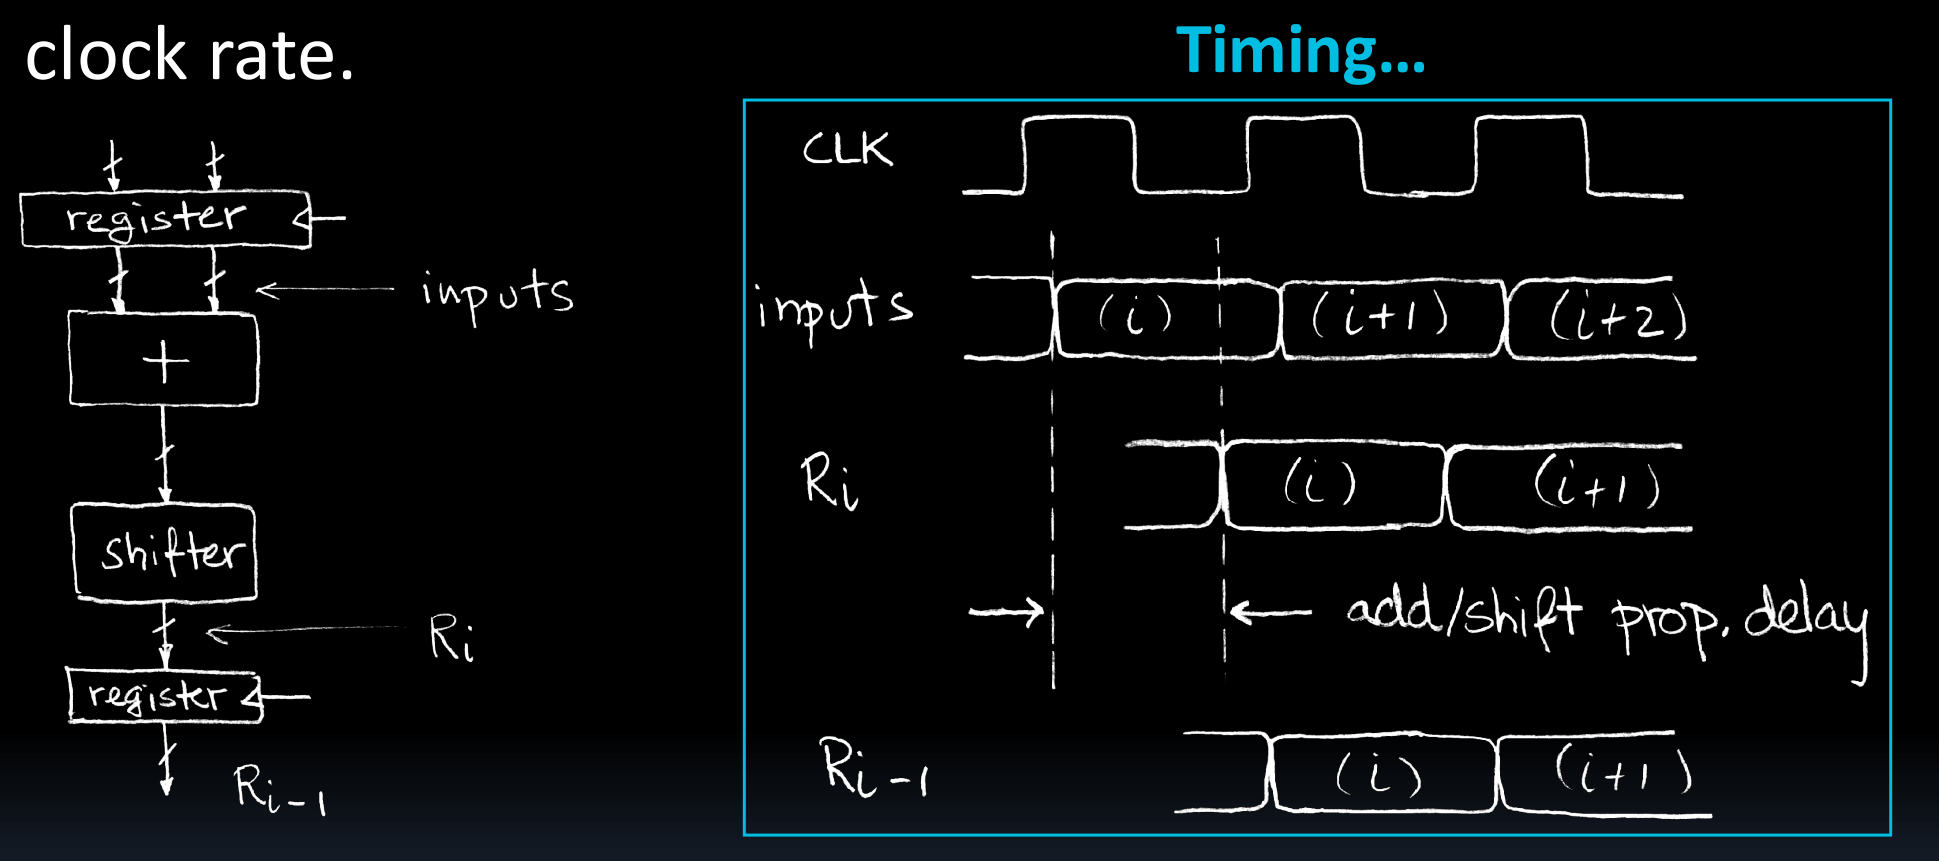 clock rate.
register
inputs
+
shifter
Ri
register
Ri-1
Timing...
CLK
inputs (i) (i+1) (i+2)
Ri (i) (i+1)
add/shift prop. delay
Ri-1 (i) (i+1)